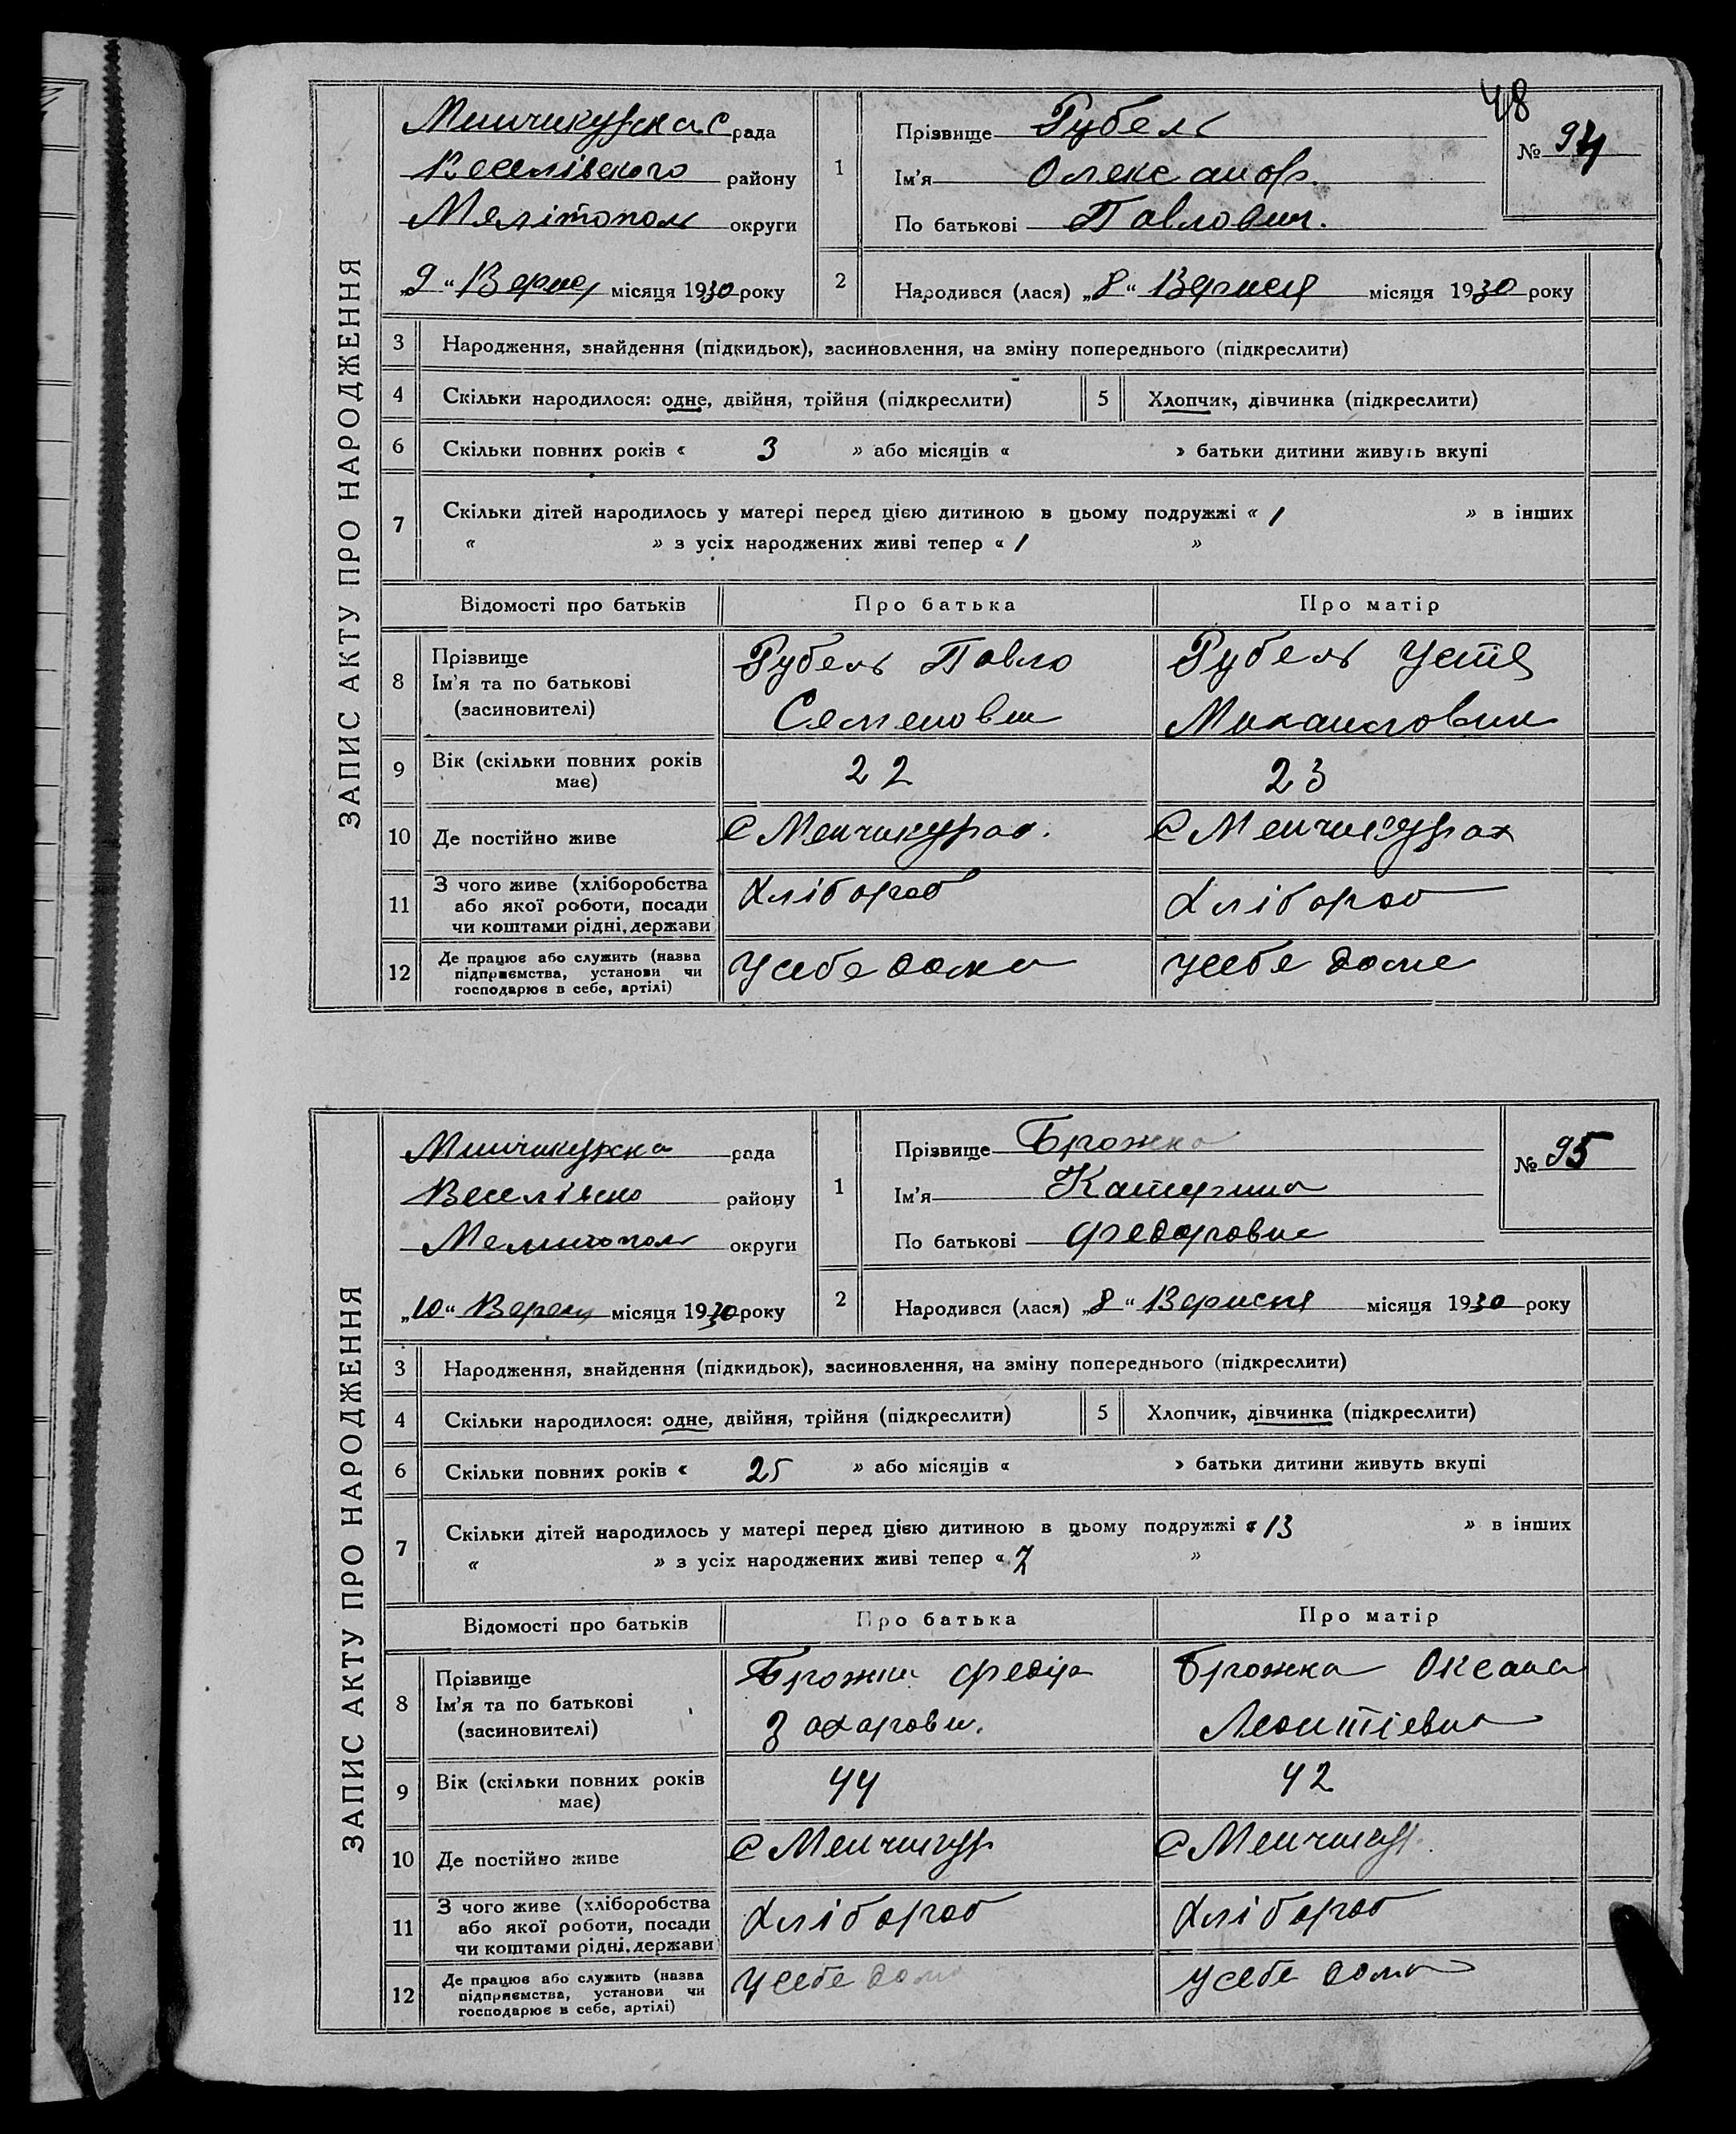 48
ЗАПИС АКТУ ПРО НАРОДЖЕННЯ
Минчикурска С рада
Веселівского району
Мелітополь округи
„9“ Верес місяця 1930 року
1 Прізвище Рубель
Ім'я Олександр.
По батькові Павлович.
№ 94
2 Народився (лася) „8“ Вересня місяця 1930 року
3 Народження, знайдення (підкидьок), засиновлення, на зміну попереднього (підкреслити)
4 Скільки народилося: одне, двійня, трійня (підкреслити) 5 Хлопчик, дівчинка (підкреслити)
6 Скільки повних років « 3 » або місяців « » батьки дитини живуть вкупі
7 Скільки дітей народилось у матері перед цією дитиною в цьому подружжі « 1 » в інших
« » з усіх народжених живі тепер « 1 »
Відомості про батьків Про батька Про матір
8 Прізвище
Ім'я та по батькові
(засиновителі)
Рубель Павло
Семенови
Рубель Устя
Михаиловни
9 Вік (скільки повних років
має)
22 23
10 Де постійно живе с Менчикурах. с Менчикурах
11 З чого живе (хліборобства
або якої роботи, посади
чи коштами рідні, держави
Хлібороб Хлібороб
12 Де працює або служить (назва
підприємства, установи чи
господарює в себе, артілі)
У себе дома У себе доме
ЗАПИС АКТУ ПРО НАРОДЖЕННЯ
Минчикурска рада
Веселівско району
Мелитополь округи
„10“ Верес місяця 1930 року
1 Прізвище Брожка
Ім'я Катерина
По батькові Федоровна
№ 95
2 Народився (лася) „8“ Вересня місяця 1930 року
3 Народження, знайдення (підкидьок), засиновлення, на зміну попереднього (підкреслити)
4 Скільки народилося: одне, двійня, трійня (підкреслити) 5 Хлопчик, дівчинка (підкреслити)
6 Скільки повних років « 25 » або місяців « » батьки дитини живуть вкупі
7 Скільки дітей народилось у матері перед цією дитиною в цьому подружжі « 13 » в інших
« » з усіх народжених живі тепер « 7 »
Відомості про батьків Про батька Про матір
8 Прізвище
Ім'я та по батькові
(засиновителі)
Брожка Федір
Захарови.
Брожка Оксана
Леонтієвна
9 Вік (скільки повних років
має)
44 42
10 Де постійно живе с Менчикур с Менчикур.
11 З чого живе (хліборобства
або якої роботи, посади
чи коштами рідні, держави
Хлібороб Хлібороб
12 Де працює або служить (назва
підприємства, установи чи
господарює в себе, артілі)
У себе дома У себе дома